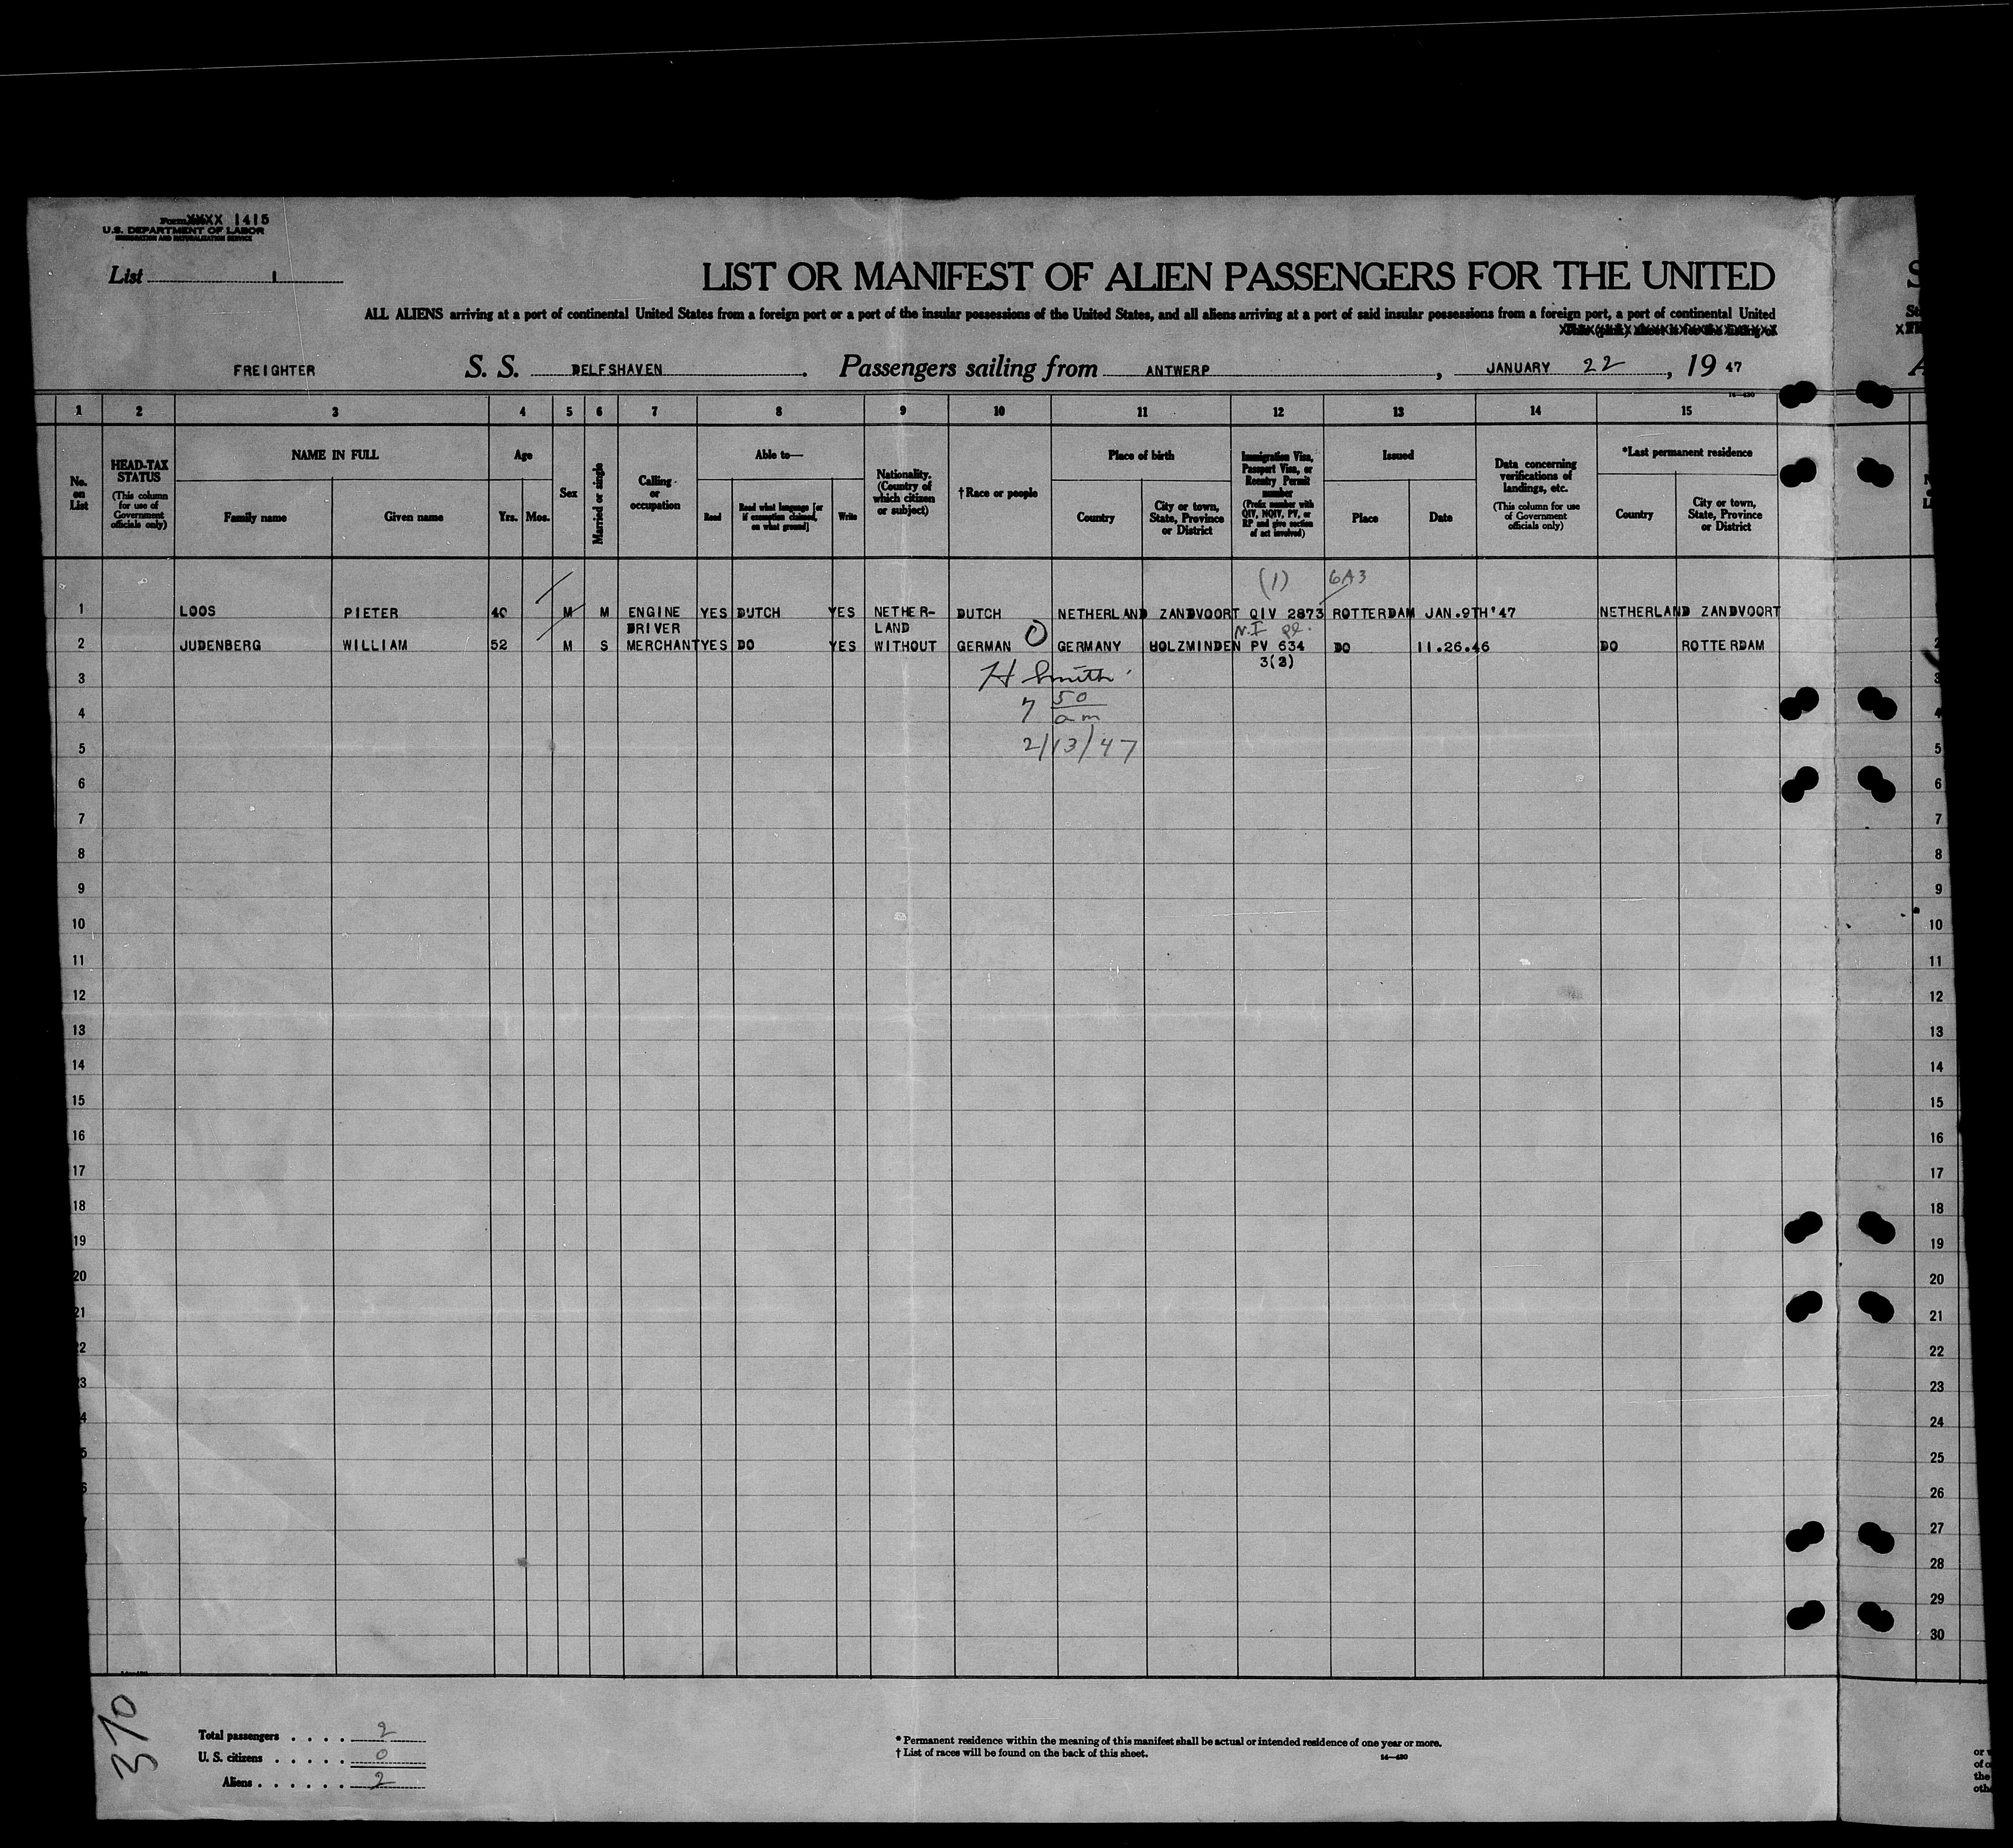 Form XXXX 1415
U.S. DEPARTMENT OF LABOR
IMMIGRATION AND NATURALIZATION SERVICE
List 1
LIST OR MANIFEST OF ALIEN PASSENGERS FOR THE UNITED
S
ALL ALIENS arriving at a port of continental United States from a foreign port or a port of the insular possessions of the United States, and all aliens arriving at a port of said insular possessions from a foreign port, a port of continental United
FREIGHTER S. S. DELFSHAVEN. Passengers sailing from ANTWERP, JANUARY 22, 19 47
1 2 3 4 5 6 7 8 9 10 11 12 13 14 15
No. on List
HEAD-TAX STATUS (This column for use of Government officials only)
NAME IN FULL
Family name Given name
Age
Yrs. Mos.
Sex
Married or single
Calling or occupation
Able to—
Read
Read what language [or if exemption claimed, on what ground]
Write
Nationality. (Country of which citizen or subject)
†Race or people
Place of birth
Country
City or town, State, Province or District
Immigration Visa, Passport Visa, or Reentry Permit number
(Prefix number with QIV, NQIV, PV, or RP and give section of act involved)
Issued
Place Date
Data concerning verifications of landings, etc.
(This column for use of Government officials only)
*Last permanent residence
Country
City or town, State, Province or District
(1) 6A3
1 LOOS PIETER 40 M M ENGINE YES DUTCH YES NETHER- DUTCH NETHERLAND ZANDVOORT QIV 2873 ROTTERDAM JAN.9TH'47 NETHERLAND ZANDVOORT
DRIVER LAND
2 JUDENBERG WILLIAM 52 M S MERCHANT YES DO YES WITHOUT GERMAN GERMANY HOLZMINDEN PV 634 DO 11.26.46 DO ROTTERDAM
3(2)
H Smith
7 50 am
2/13/47
3
4
5
6
7
8
9
10
11
12
13
14
15
16
17
18
19
20
21
22
23
24
25
26
27
28
29
30
370
Total passengers . . . . 2
U. S. citizens . . . . . 0
Aliens . . . . . . 2
* Permanent residence within the meaning of this manifest shall be actual or intended residence of one year or more.
† List of races will be found on the back of this sheet.